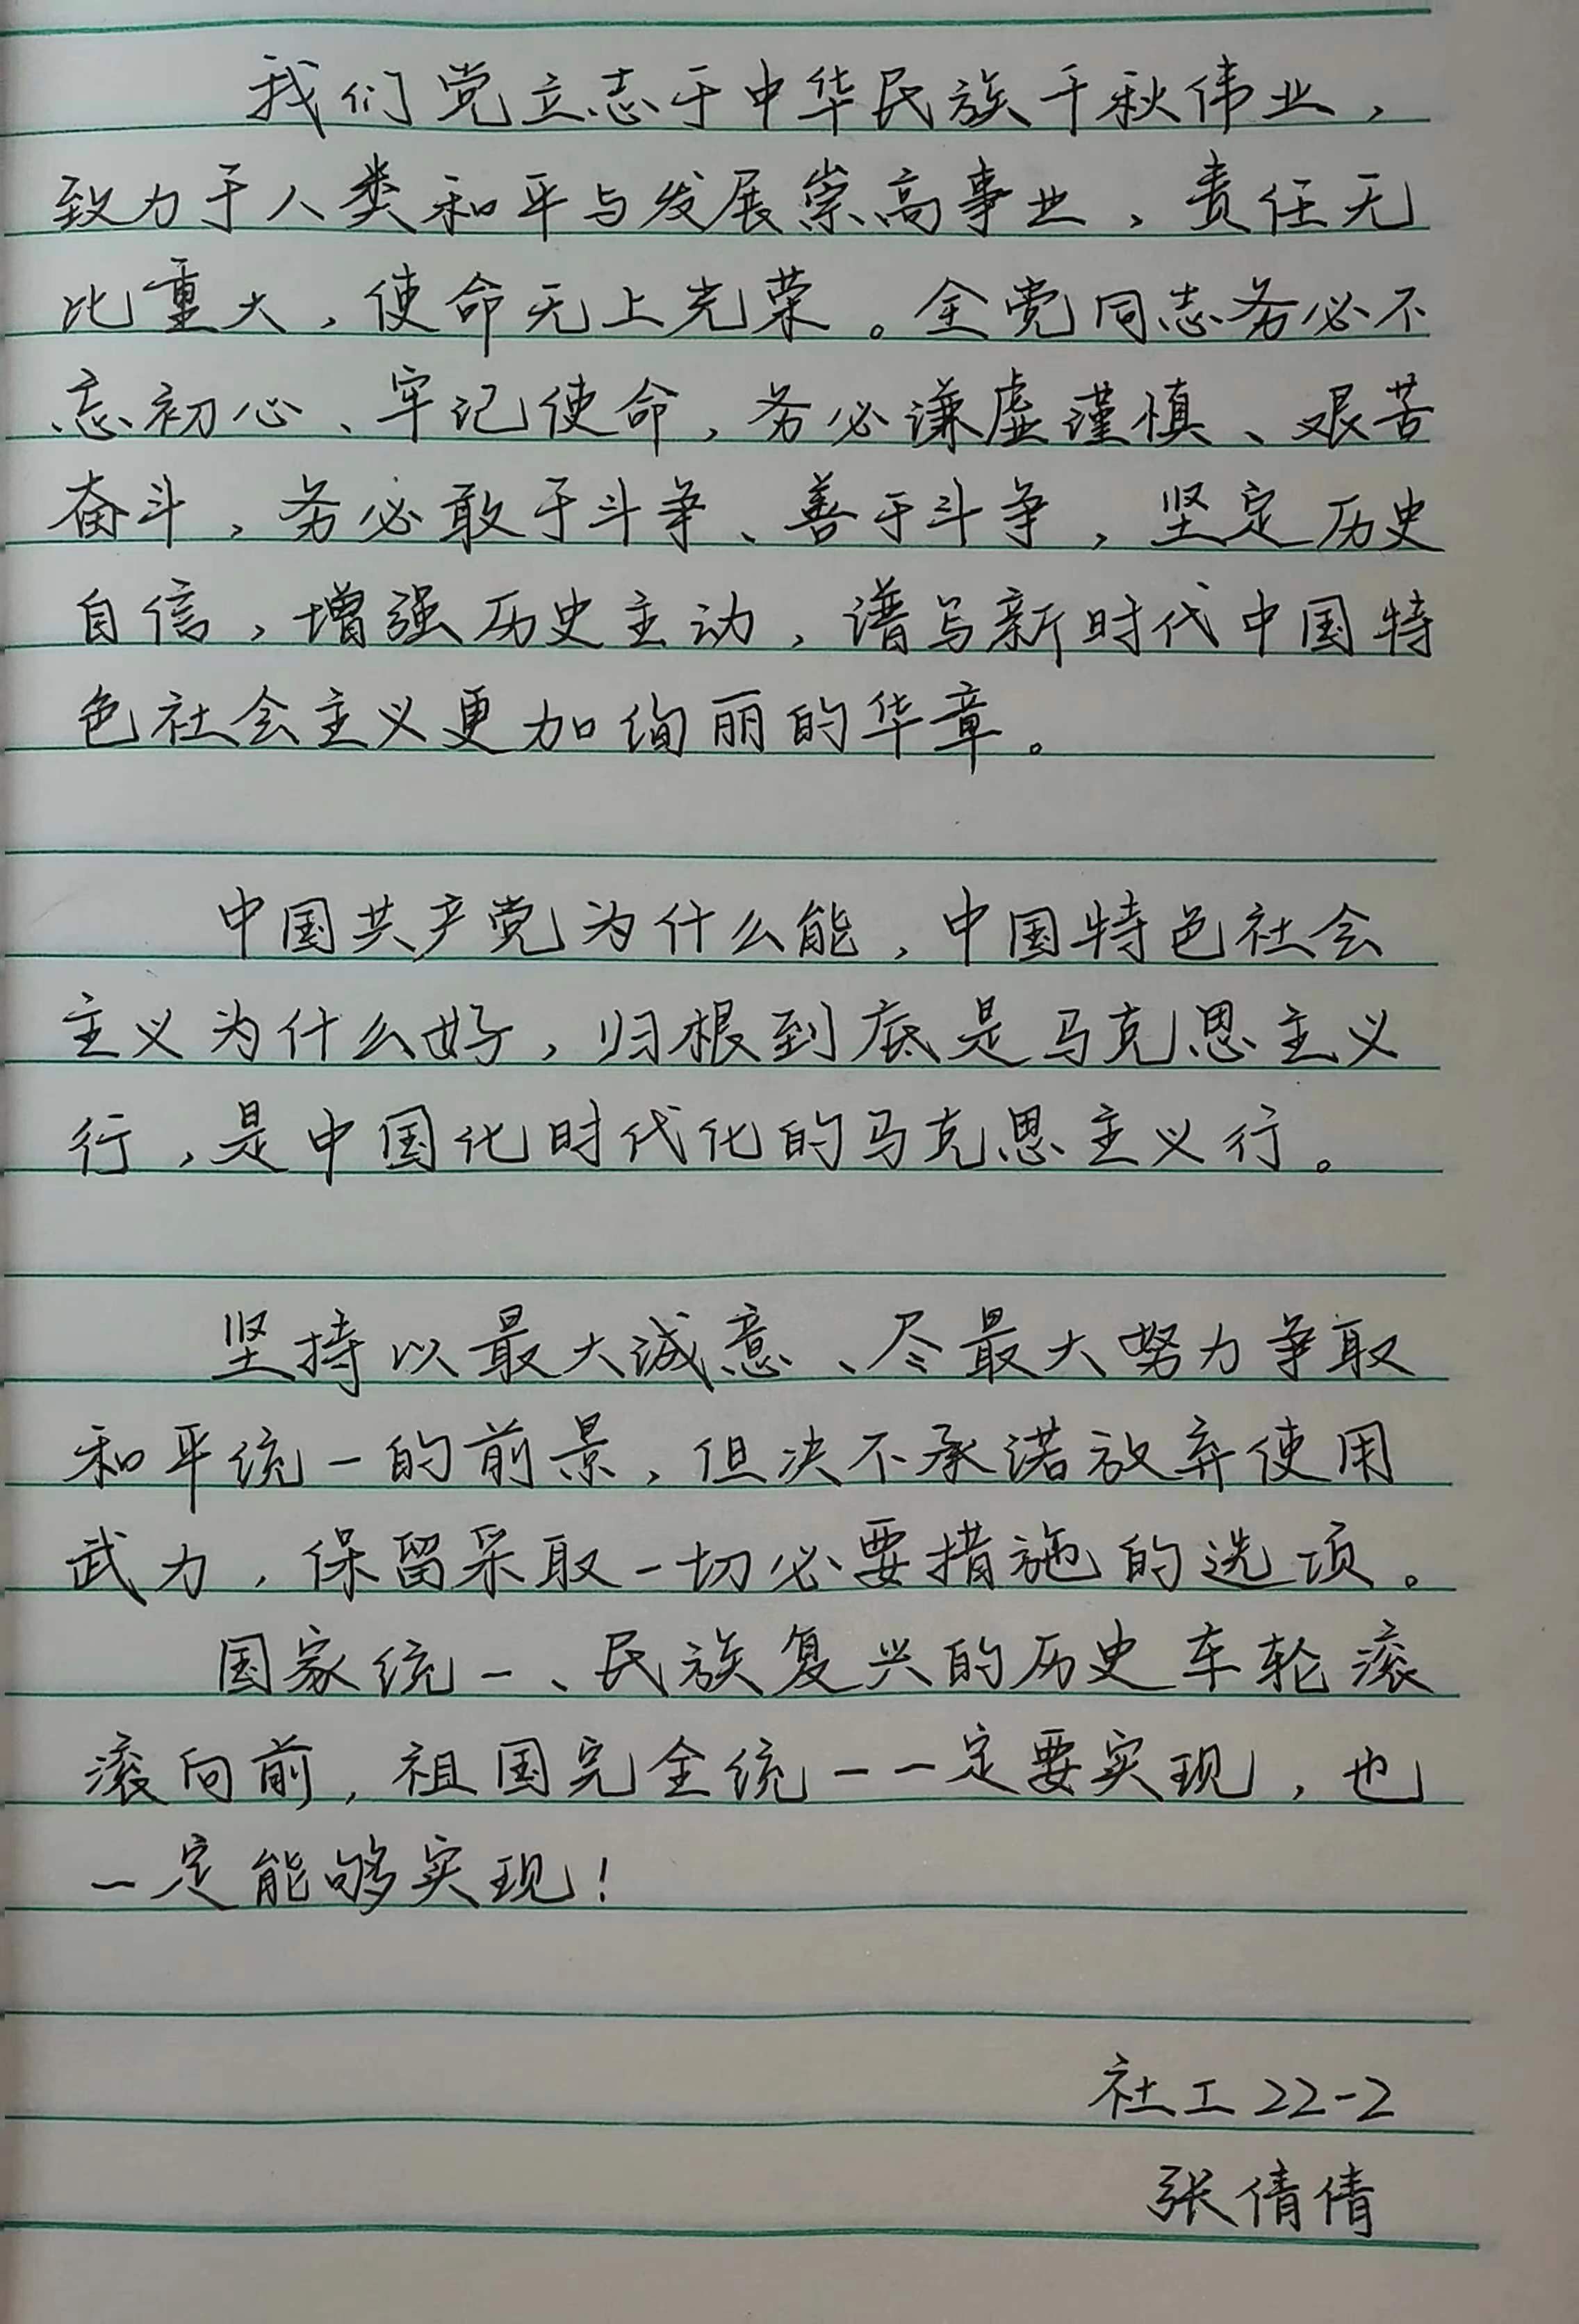 我们党立志于中华民族千秋伟业，
致力于人类和平与发展崇高事业，责任无
比重大，使命无上光荣。全党同志务必不
忘初心、牢记使命，务必谦虚谨慎、艰苦
奋斗，务必敢于斗争、善于斗争，坚定历史
自信，增强历史主动，谱写新时代中国特
色社会主义更加绚丽的华章。
中国共产党为什么能，中国特色社会
主义为什么好，归根到底是马克思主义
行，是中国化时代化的马克思主义行。
坚持以最大诚意、尽最大努力争取
和平统一的前景，但决不承诺放弃使用
武力，保留采取一切必要措施的选项。
国家统一、民族复兴的历史车轮滚
滚向前，祖国完全统一一定要实现，也
一定能够实现！
社工22-2
张倩倩